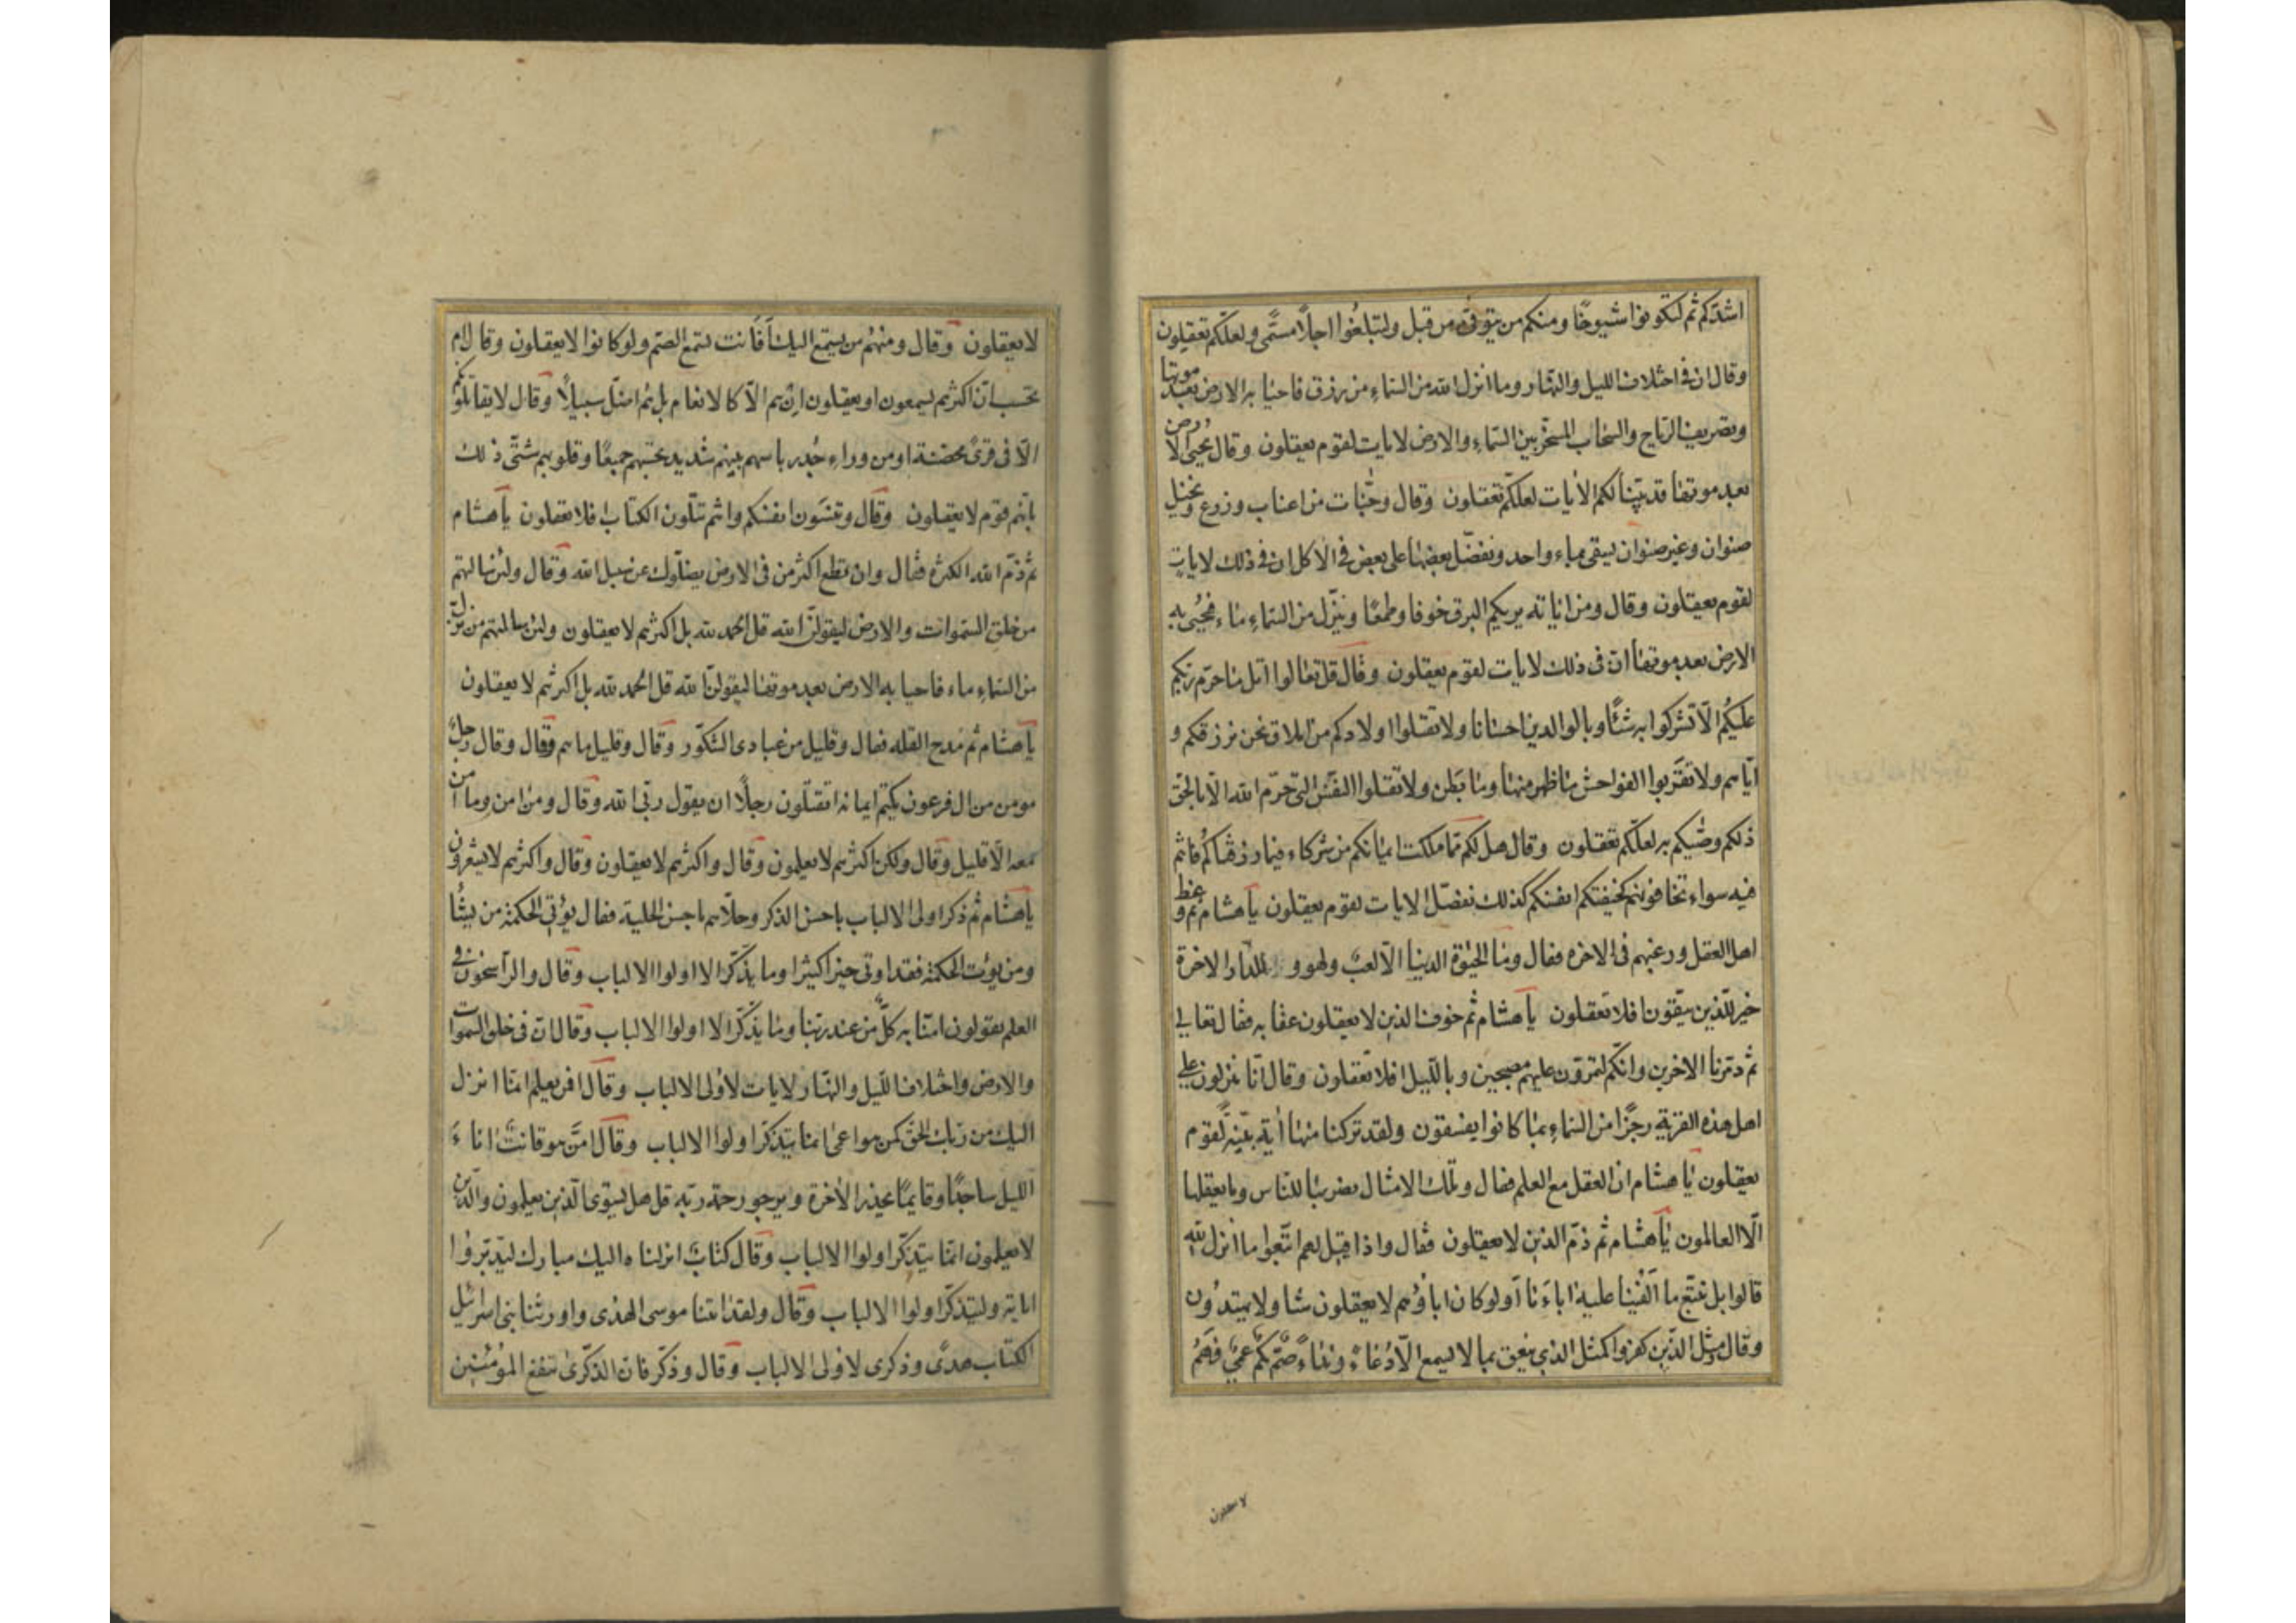 اشدكم ثم لتكونوا شيوخا ومنكم من يتوفى من قبل ولتبلغوا اجلا مسمى ولعلكم تعقلون
وقال ان فى اختلاف الليل والنهار وما أنزل الله من السماء من رزق فاحيا به الارض بعد موتها
وتصريف الرياح والسحاب المسخر بين السماء والارض لايات لقوم يعقلون وقال يحيى الارض
بعد موتها قد بينا لكم الأيات لعلكم تعقلون وقال وجنات من اعناب وزرع ونخيل
صنوان وغير صنوان يسقى بماء واحد ونفضل بعضها على بعض فى الاكل ان فى ذلك لايات
لقوم يعقلون وقال ومن اياته يريكم البرق خوفا وطمعا وينزل من السماء ماء فيحيى به
الارض بعد موتها ان فى ذلك لايات لقوم يعقلون وقال قل تعالوا اتل ما حرم ربكم
عليكم الا تشركوا به شيئا وبالوالدين احسانا ولا تقتلوا اولادكم من املاق نحن نرزقكم و
اياهم ولا تقربوا الفواحش ما ظهر منها وما بطن ولا تقتلوا النفس التى حرم الله الا بالحق
ذلكم وصيكم به لعلكم تعقلون وقال هل لكم مما ملكت ايمانكم من شركاء فيما رزقناكم فانتم
فيه سواء تخافونهم كخيفتكم انفسكم كذلك نفصل الايات لقوم يعقلون يا هشام ثم وعظ
اهل العقل ورغبهم فى الاخرة فقال وما الحيوة الدنيا الا لعب ولهو وللدار الاخرة
خير للذين يتقون افلا تعقلون يا هشام ثم خوف الذين لا يعقلون عقابه فقال تعالى
ثم دمرنا الاخرين وانكم لتمرون عليهم مصبحين وبالليل افلا تعقلون وقال انا منزلون على
اهل هذه القرية رجزا من السماء بما كانوا يفسقون ولقد تركنا منها أية بينة لقوم
يعقلون يا هشام ان العقل مع العلم فقال وتلك الامثال نضربها للناس وما يعقلها
الا العالمون يا هشام ثم ذم الذين لا يعقلون فقال واذا قيل لهم اتبعوا ما أنزل الله
قالوا بل نتبع ما الفينا عليه اباءنا أولو كان اباؤهم لا يعقلون شيا ولا يهتدون
وقال ومثل الذين كفروا كمثل الذى ينعق بما لا يسمع الا دعاء ونداء صم بكم عمى فهم
لا يعقلون
لا يعقلون وقال ومنهم من يستمع اليك أفأنت تسمع الصم ولو كانوا لا يعقلون وقال ام
تحسب ان اكثرهم يسمعون او يعقلون ان هم الا كالانعام بل هم اضل سبيلا وقال لا يقاتلونكم
الا فى قرى محصنة او من وراء جدر باسهم بينهم شديد تحسبهم جميعا وقلوبهم شتى ذلك
بانهم قوم لا يعقلون وقال وتنسون انفسكم وانتم تتلون الكتاب افلا تعقلون يا هشام
ثم ذم الله الكثرة فقال وان تطع اكثر من فى الارض يضلوك عن سبيل الله وقال ولئن سالتهم
من خلق السموات والارض ليقولن الله قل الحمد لله بل اكثرهم لا يعقلون ولئن سالتهم من نزل
من السماء ماء فاحيا به الارض بعد موتها ليقولن الله قل الحمد لله بل اكثرهم لا يعقلون
يا هشام ثم مدح القلة فقال وقليل من عبادى الشكور وقال وقليل ما هم وقال وقال رجل
مومن من ال فرعون يكتم ايمانه اتقتلون رجلا ان يقول ربى الله وقال ومن امن وما امن
معه الا قليل وقال ولكن اكثرهم لا يعلمون وقال واكثرهم لا يعقلون وقال واكثرهم لا يشعرون
يا هشام ثم ذكر اولى الالباب باحسن الذكر وحلاهم باحسن الحلية فقال يؤتى الحكمة من يشأ
ومن يؤت الحكمة فقد اوتى خيرا كثيرا وما يذكر الا اولوا الالباب وقال والراسخون فى
العلم يقولون امنا به كل من عند ربنا وما يذكر الا اولوا الالباب وقال ان فى خلق السموات
والارض واختلاف الليل والنهار لايات لأولى الالباب وقال افمن يعلم انما انزل
اليك من ربك الحق كمن هو اعمى انما يتذكر اولوا الالباب وقال امن هو قانت اناء
الليل ساجدا وقايما يحذر الأخرة ويرجو رحمة ربه قل هل يستوى الذين يعلمون والذين
لا يعلمون انما يتذكر اولوا الالباب وقال كتاب انزلناه اليك مبارك ليدبروا
اياته وليتذكر اولوا الالباب وقال ولقد اتينا موسى الهدى واورثنا بنى اسرائيل
الكتاب هدى وذكرى لاولى الالباب وقال وذكر فان الذكرى تنفع المؤمنين